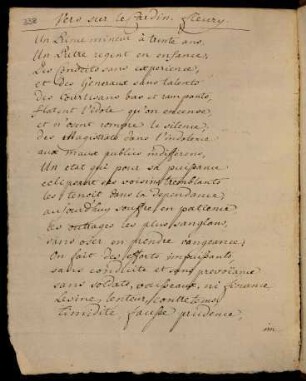 Vers sur le Cardin. fleury.
Un Prince mineur à trente ans,
Un Pretre regent en enfance,
Des Conseils sans experience,
et Des Generaux sans talents
des Courtisans bas et rampants,
flatent l'idole qu'on encense
et n'osent rompre le silence,
des Magistrats dans l'indolence
aux maux publics indifferens,
Un etat qui pour sa puissance
eclipsant ses voisins tremblants
les tenoit dans la dependance,
aujourd'huy souffre en patience
les outrages les plus sanglans,
sans oser en prendre vangeance;
On fait des efforts impuissants,
sans conduite et sans prevoiance
sans soldats, vaisseaux, ni finance
lenteur, contretems,
timidité, fausse prudence,